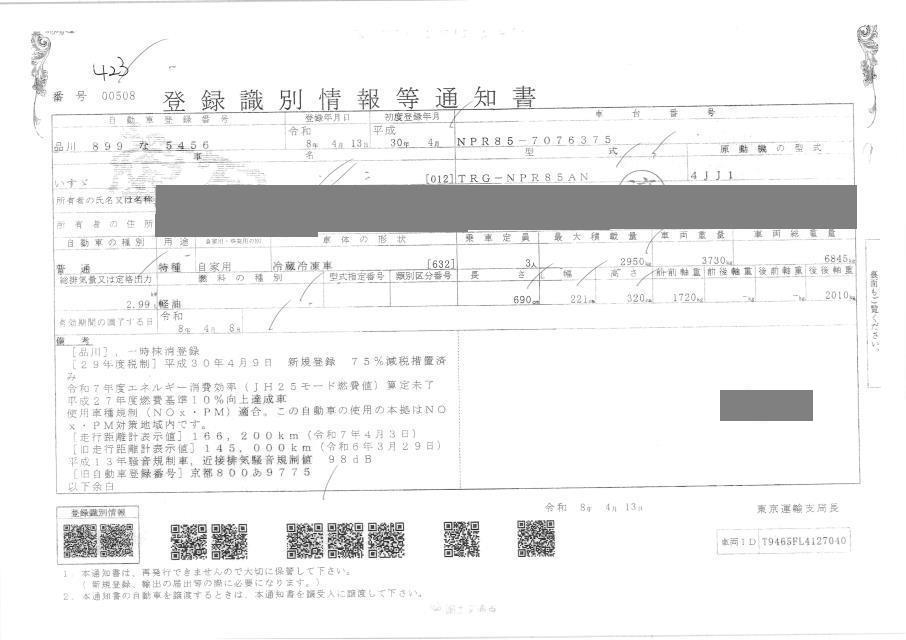 423
番号 00508 登録識別情報等通知書
自動車登録番号 登録年月日 初度登録年月 車台番号
品川 899 な 5456 令和 8年 4月 13日 平成 30年 4月 NPR85-7076375
車名 型式 原動機の型式
いすゞ [012] TRG-NPR85AN 4JJ1
所有者の氏名又は名称
所有者の住所
自動車の種別 用途 自家用・事業用の別 車体の形状 乗車定員 最大積載量 車両重量 車両総重量
普通 特種 自家用 冷蔵冷凍車 [632] 3人 2950kg 3730kg 6845kg
総排気量又は定格出力 燃料の種別 型式指定番号 類別区分番号 長さ 幅 高さ 前前軸重 前後軸重 後前軸重 後後軸重
2.99 軽油 690cm 221cm 320cm 1720kg -kg -kg 2010kg
有効期間の満了する日 令和 8年 4月 8日
備考
[品川],一時抹消登録
[29年度税制]平成30年4月9日 新規登録 75%減税措置済
み
令和7年度エネルギー消費効率(JH25モード燃費値)算定未了
平成27年度燃費基準10%向上達成車
使用車種規制(NOx・PM)適合。この自動車の使用の本拠はNO
x・PM対策地域内です。
[走行距離計表示値]166,200km(令和7年4月3日)
[旧走行距離計表示値]145,000km(令和6年3月29日)
平成13年騒音規制車、近接排気騒音規制値 98dB
[旧自動車登録番号]京都800あ9775
以下余白
裏面もご覧ください。
令和 8年 4月 13日 東京運輸支局長
登録識別情報
車両ID T9465FL4127040
1.本通知書は、再発行できませんので大切に保管して下さい。
(新規登録、輸出の届出等の際に必要になります。)
2.本通知書の自動車を譲渡するときは、本通知書を譲受人に譲渡して下さい。